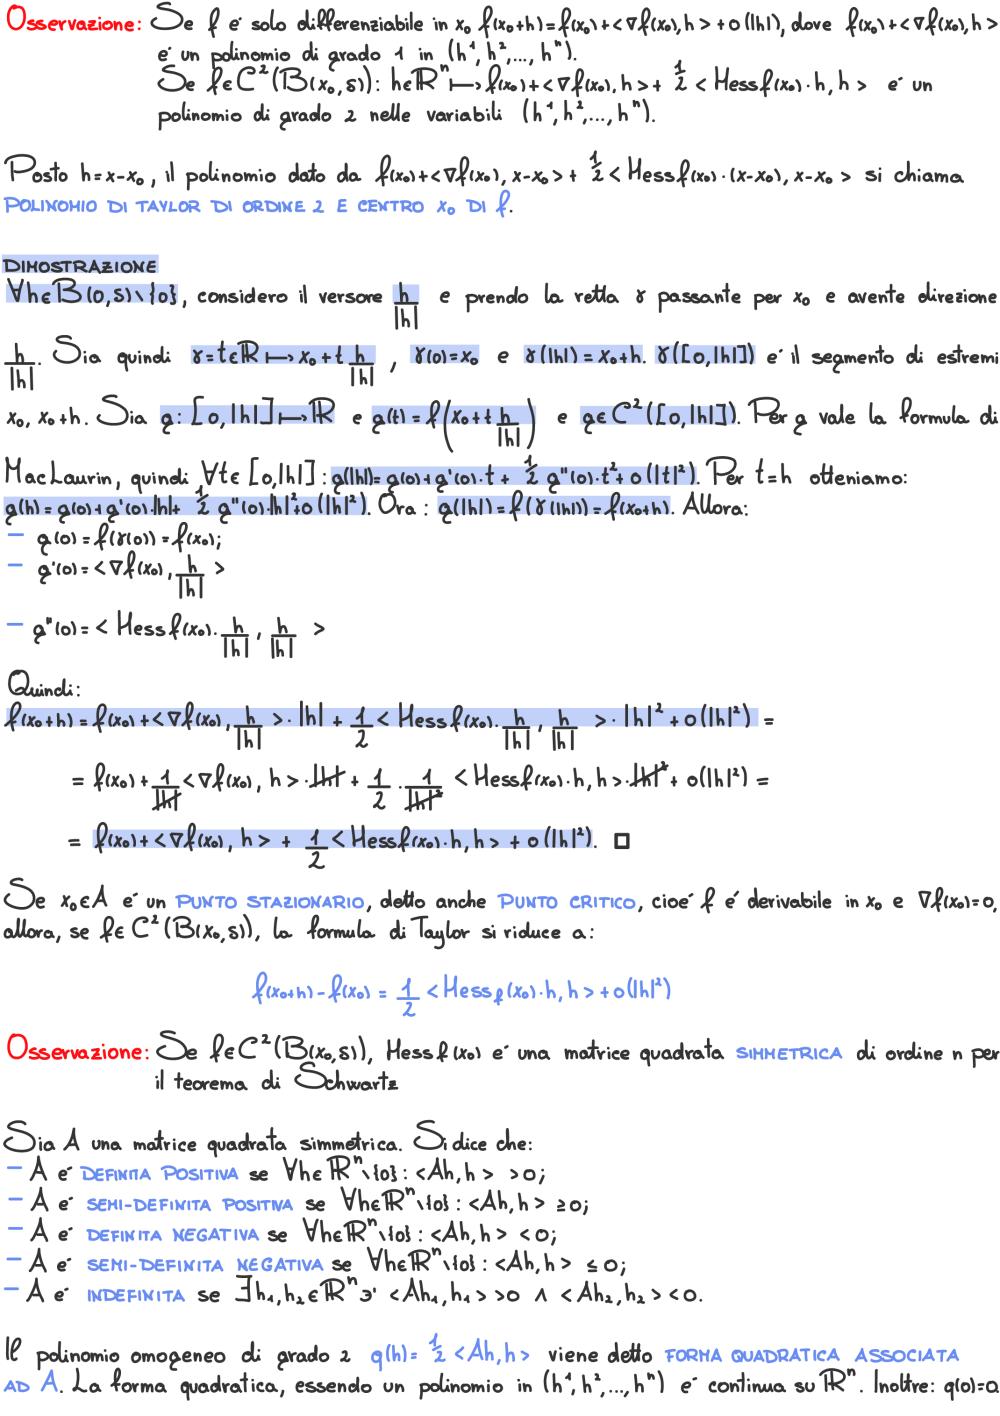 Osservazione: Se f è solo differenziabile in x₀ f(x₀+h)=f(x₀)+<∇f(x₀),h>+o(|h|), dove f(x₀)+<∇f(x₀),h>
è un polinomio di grado 1 in (h¹,h²,...,hⁿ).
Se f∈C²(B(x₀,δ)): h∈ℝⁿ↦f(x₀)+<∇f(x₀),h>+ 1/2 <Hessf(x₀)·h,h> è un
polinomio di grado 2 nelle variabili (h¹,h²,...,hⁿ).
Posto h=x-x₀, il polinomio dato da f(x₀)+<∇f(x₀),x-x₀>+ 1/2 <Hessf(x₀)·(x-x₀),x-x₀> si chiama
POLINOMIO DI TAYLOR DI ORDINE 2 E CENTRO x₀ DI f.
DIMOSTRAZIONE
∀h∈B(0,δ)\{0}, considero il versore h/|h| e prendo la retta γ passante per x₀ e avente direzione
h/|h|. Sia quindi γ=t∈ℝ↦x₀+t h/|h| , γ(0)=x₀ e γ(|h|)=x₀+h. γ([0,|h|]) è il segmento di estremi
x₀, x₀+h. Sia g:[0,|h|]↦ℝ e g(t)=f(x₀+t h/|h|) e g∈C²([0,|h|]). Per g vale la formula di
MacLaurin, quindi ∀t∈[0,|h|]: g(|h|)=g(0)+g'(0)·t+ 1/2 g''(0)·t²+o(|t|²). Per t=h otteniamo:
g(h)=g(0)+g'(0)·|h|+ 1/2 g''(0)·|h|²+o(|h|²). Ora: g(|h|)=f(γ(|h|))=f(x₀+h). Allora:
– g(0)=f(γ(0))=f(x₀);
– g'(0)=<∇f(x₀), h/|h| >
– g''(0)=< Hessf(x₀)· h/|h| , h/|h| >
Quindi:
f(x₀+h)=f(x₀)+<∇f(x₀), h/|h| >·|h| + 1/2 <Hessf(x₀)· h/|h| , h/|h| >·|h|²+o(|h|²) =
= f(x₀)+ 1/|h| <∇f(x₀), h>·|h| + 1/2 · 1/|h|² <Hessf(x₀)·h,h>·|h|²+o(|h|²) =
= f(x₀)+<∇f(x₀), h> + 1/2 <Hessf(x₀)·h,h> +o(|h|²). □
Se x₀∈A è un PUNTO STAZIONARIO, detto anche PUNTO CRITICO, cioè f è derivabile in x₀ e ∇f(x₀)=0,
allora, se f∈C²(B(x₀,δ)), la formula di Taylor si riduce a:
f(x₀+h)-f(x₀) = 1/2 <Hess_f(x₀)·h,h>+o(|h|²)
Osservazione: Se f∈C²(B(x₀,δ)), Hessf(x₀) è una matrice quadrata SIMMETRICA di ordine n per
il teorema di Schwartz
Sia A una matrice quadrata simmetrica. Si dice che:
– A è DEFINITA POSITIVA se ∀h∈ℝⁿ\{0}: <Ah,h> >0;
– A è SEMI-DEFINITA POSITIVA se ∀h∈ℝⁿ\{0}: <Ah,h> ≥0;
– A è DEFINITA NEGATIVA se ∀h∈ℝⁿ\{0}: <Ah,h> <0;
– A è SEMI-DEFINITA NEGATIVA se ∀h∈ℝⁿ\{0}: <Ah,h> ≤0;
– A è INDEFINITA se ∃h₁,h₂∈ℝⁿ∋' <Ah₁,h₁> >0 ∧ <Ah₂,h₂> <0.
Il polinomio omogeneo di grado 2 q(h)= 1/2 <Ah,h> viene detto FORMA QUADRATICA ASSOCIATA
AD A. La forma quadratica, essendo un polinomio in (h¹,h²,...,hⁿ) è continua su ℝⁿ. Inoltre: q(0)=0